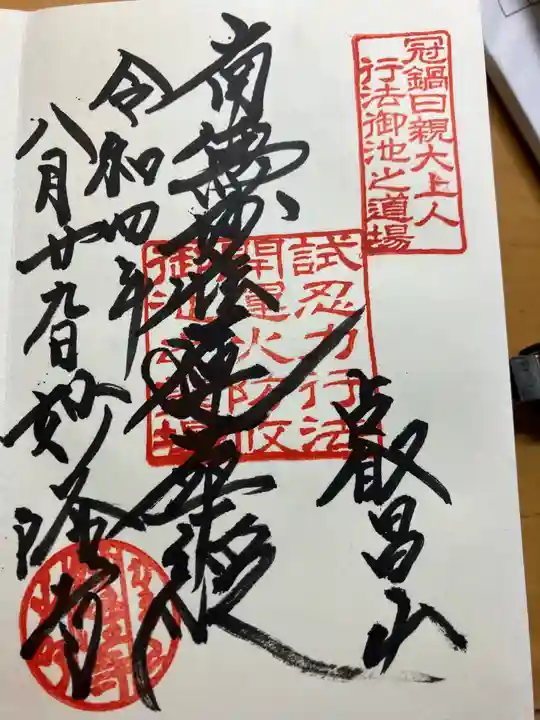 冠鍋日親大上人
行法御池之道場
叡昌山
試忍力行法
開運火防
御
南無妙法蓮華経
令和四年
八月廿九日